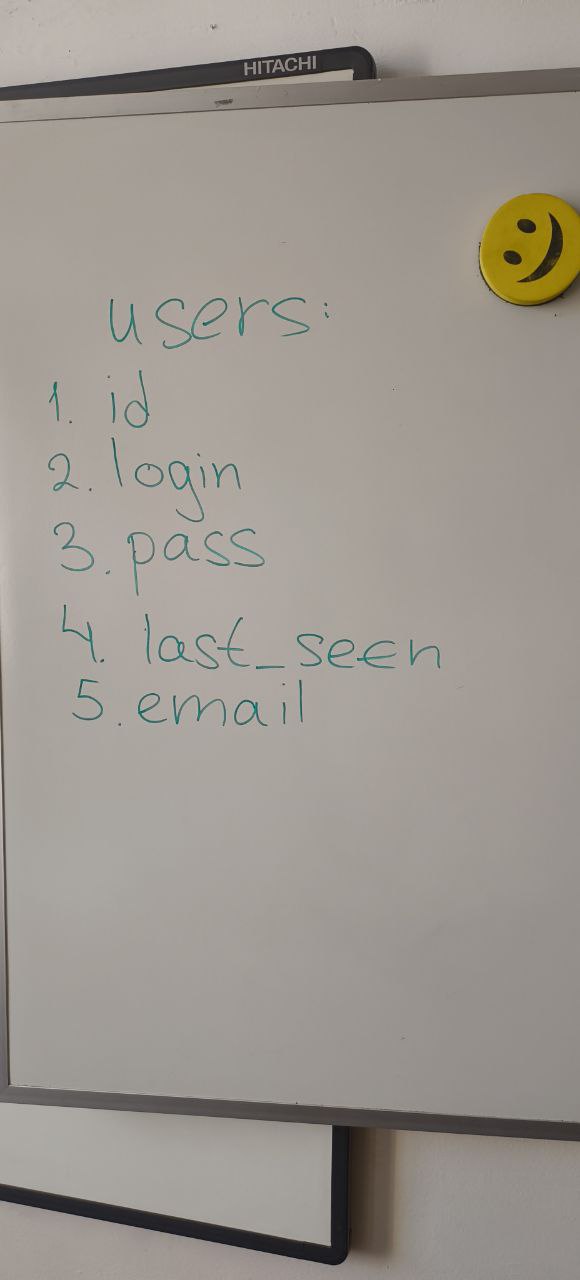 HITACHI
users:
1. id
2. login
3. pass
4. last_seen
5. email